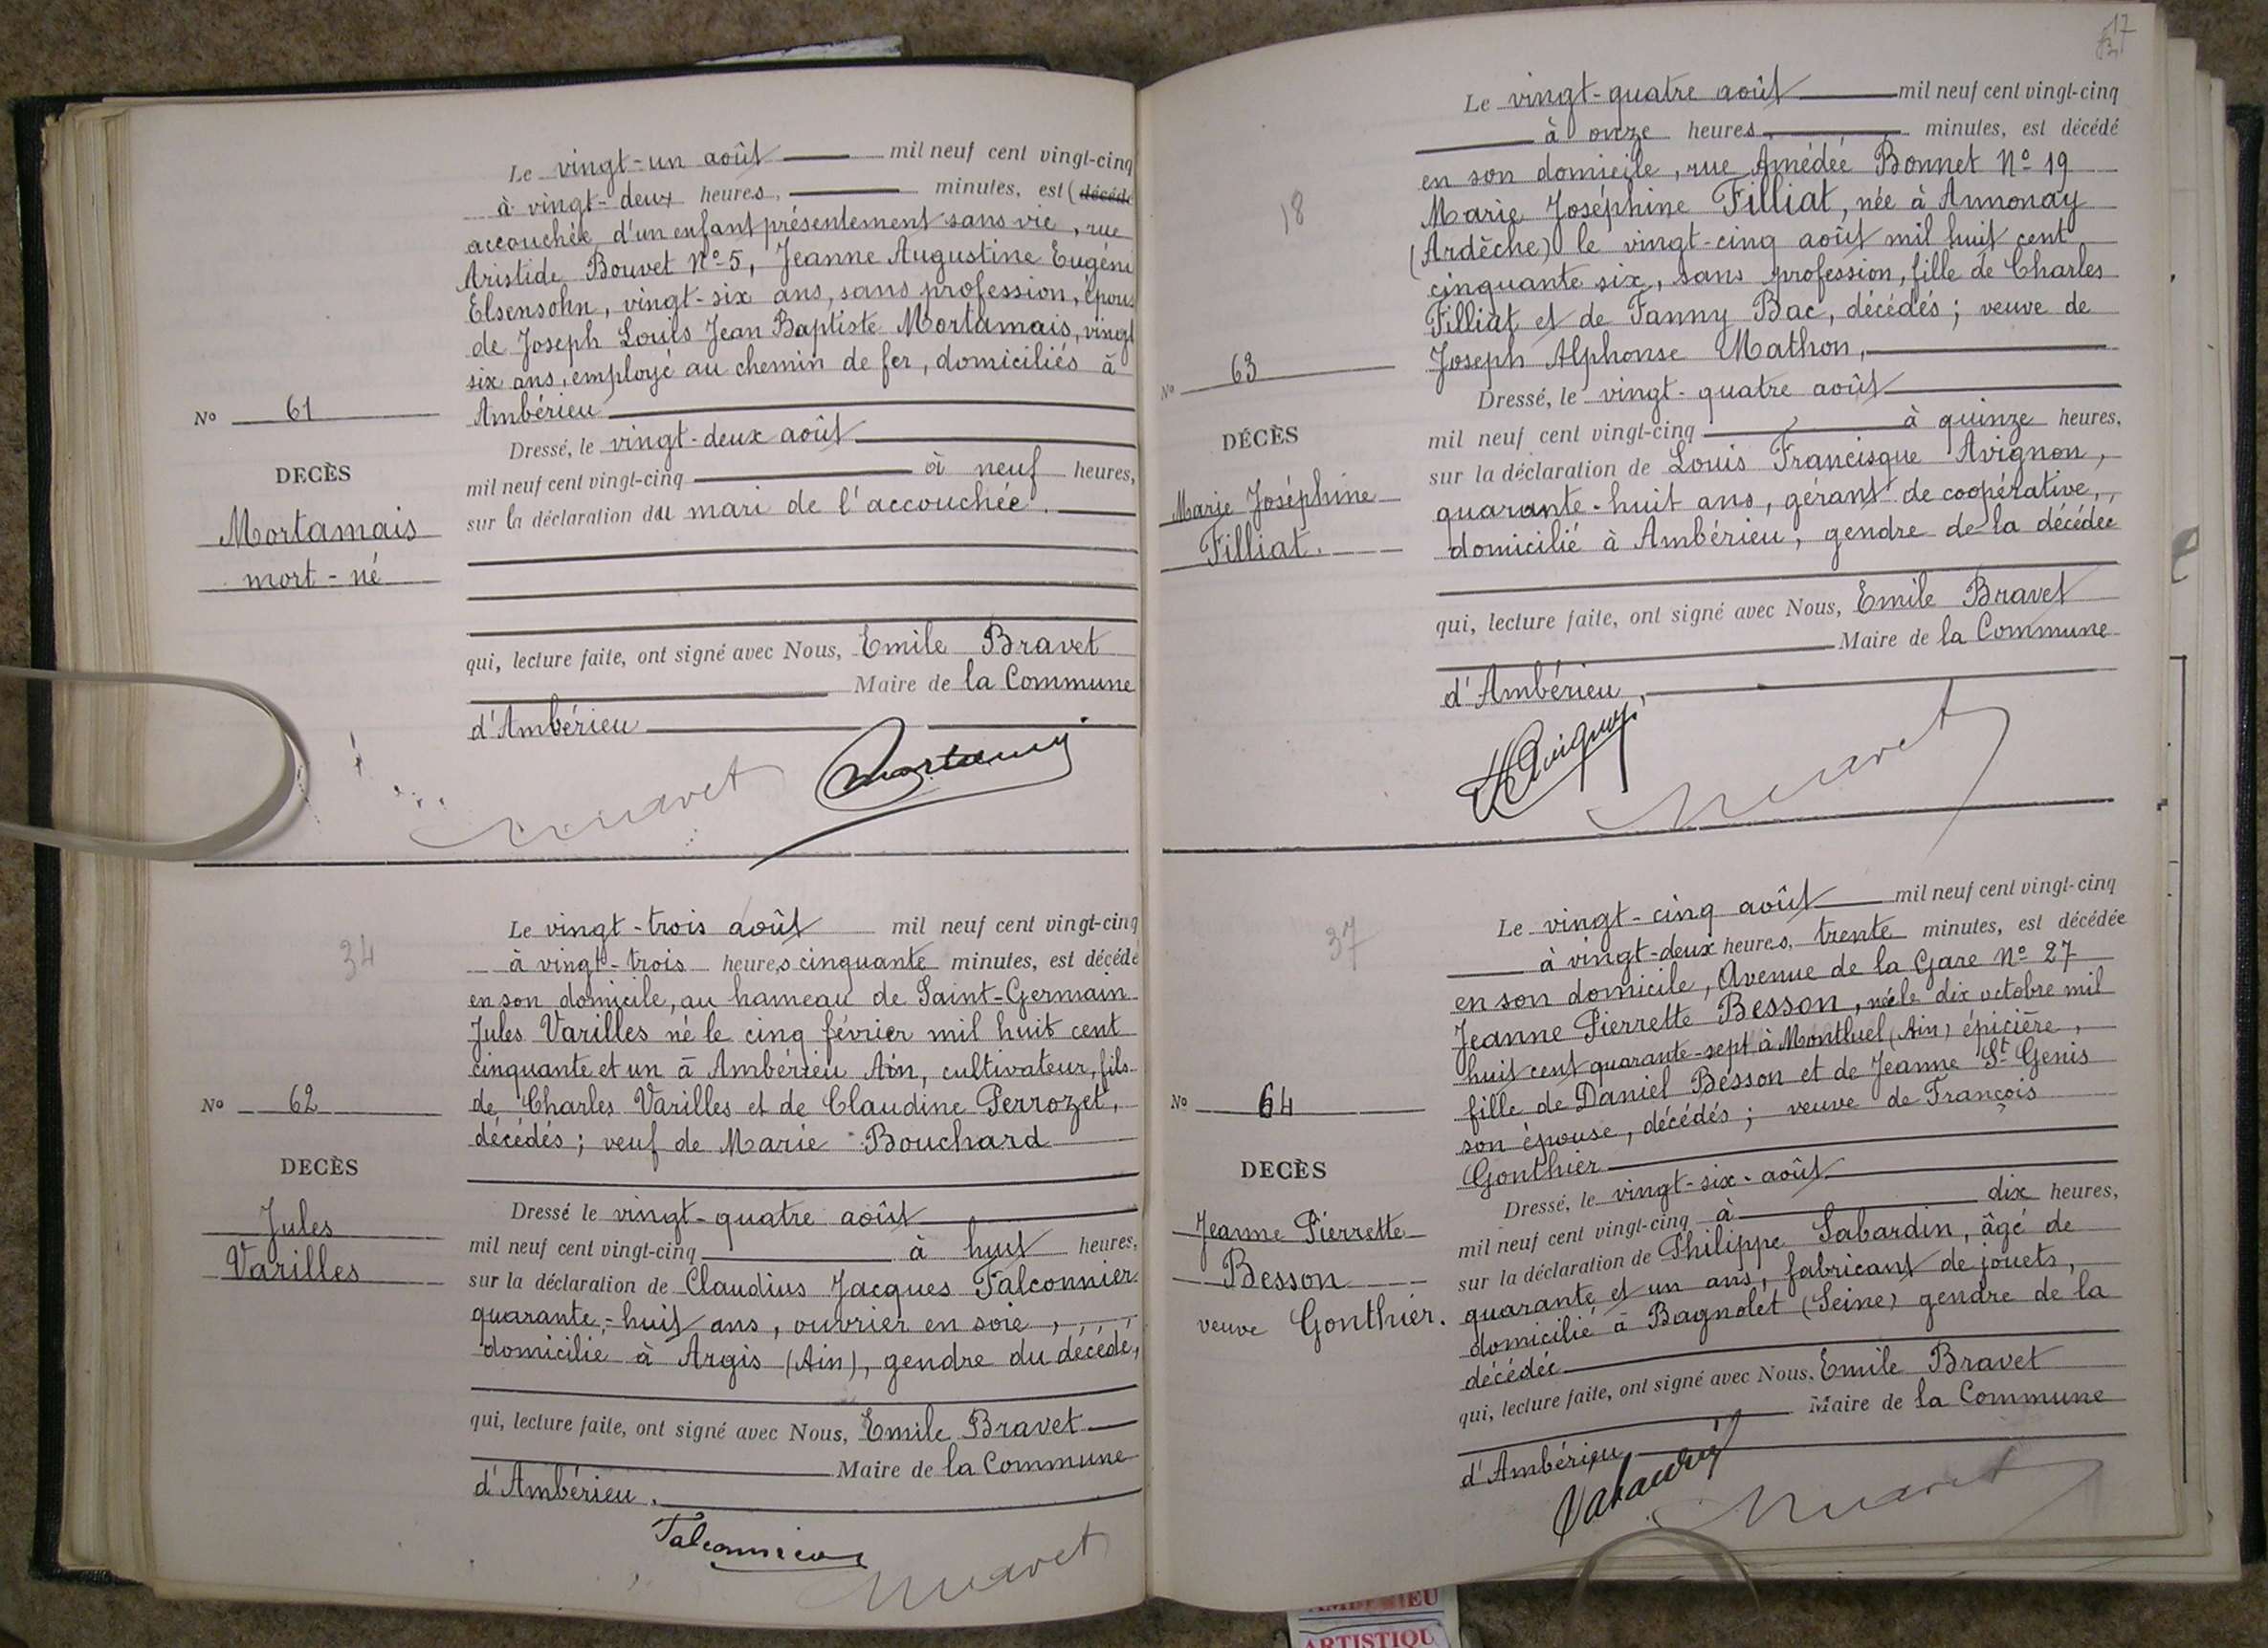 Le vingt-un août mil neuf cent vingt-cinq
à vingt-deux heures, minutes, est (décédé
accouchée d'un enfant présentement sans vie, rue
Aristide Bouvet Nº 5, Jeanne Augustine Eugéni
Elsensohn, vingt-six ans, sans profession, épous
de Joseph Louis Jean Baptiste Mortamais, vingt
six ans, employé au chemin de fer, domiciliés à
Ambérieu
Nº 61
DECÈS
Mortamais
mort-né
Dressé, le vingt-deux août
mil neuf cent vingt-cinq à neuf heures,
sur la déclaration du mari de l'accouchée.
qui, lecture faite, ont signé avec Nous, Emile Bravet
Maire de la Commune
d'Ambérieu
34
Le vingt-trois août mil neuf cent vingt-cinq
à vingt-trois heures cinquante minutes, est décédé
en son domicile, au hameau de Saint-Germain
Jules Varilles né le cinq février mil huit cent
cinquante et un à Ambérieu Ain, cultivateur, fils
de Charles Varilles et de Claudine Perrozet,
décédés; veuf de Marie Bouchard
Nº 62
DECÈS
Jules
Varilles
Dressé le vingt-quatre août
mil neuf cent vingt-cinq à huit heures,
sur la déclaration de Claudius Jacques Falconnier
quarante-huit ans, ouvrier en soie,
domicilié à Argis (Ain), gendre du décédé,
qui, lecture faite, ont signé avec Nous, Emile Bravet
Maire de la Commune
d'Ambérieu.
Falconnier
17
18
Le vingt-quatre août mil neuf cent vingt-cinq
à onze heures, minutes, est décédé
en son domicile, rue Amédée Bonnet Nº 19
Marie Joséphine Filliat, née à Annonay
(Ardèche) le vingt-cinq août mil huit cent
cinquante six, sans profession, fille de Charles
Filliat et de Fanny Bac, décédés; veuve de
Joseph Alphonse Mathon,
Nº 63
DÉCÈS
Marie Joséphine
Filliat.
Dressé, le vingt-quatre août
mil neuf cent vingt-cinq à quinze heures,
sur la déclaration de Louis Francisque Avignon,
quarante-huit ans, gérant de coopérative,
domicilié à Ambérieu, gendre de la décédée
qui, lecture faite, ont signé avec Nous, Emile Bravet
Maire de la Commune
d'Ambérieu,
37
Le vingt-cinq août mil neuf cent vingt-cinq
à vingt-deux heures, trente minutes, est décédée
en son domicile, Avenue de la Gare Nº 27
Jeanne Pierrette Besson, née le dix octobre mil
huit cent quarante-sept à Montluel (Ain) épicière,
fille de Daniel Besson et de Jeanne St Genis
son épouse, décédés; veuve de François
Gonthier
Nº 64
DECÈS
Jeanne Pierrette
Besson
veuve Gonthier.
Dressé, le vingt-six août
mil neuf cent vingt-cinq à dix heures,
sur la déclaration de Philippe Sabardin, âgé de
quarante et un ans, fabricant de jouets,
domicilié à Bagnolet (Seine) gendre de la
décédée
qui, lecture faite, ont signé avec Nous, Emile Bravet
Maire de la Commune
d'Ambérieu
ARTISTIQU